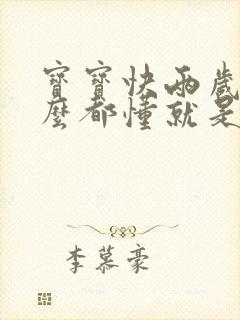 寶寶快兩歲
麼都懂就是
李慕豪